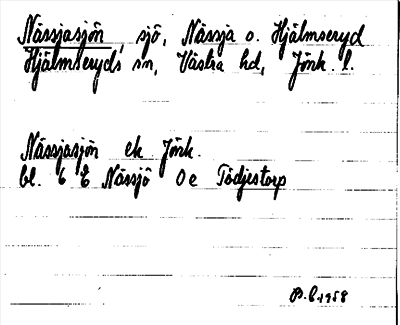 Nässjasjön, sjö, Nässja o. Hjälmseryd
Hjälmseryds sn, Västra hd, Jönk. l.
Nässjasjön ek Jönk.
bl. 6 E Nässjö 0e Tödjestorp
B.E. 1958